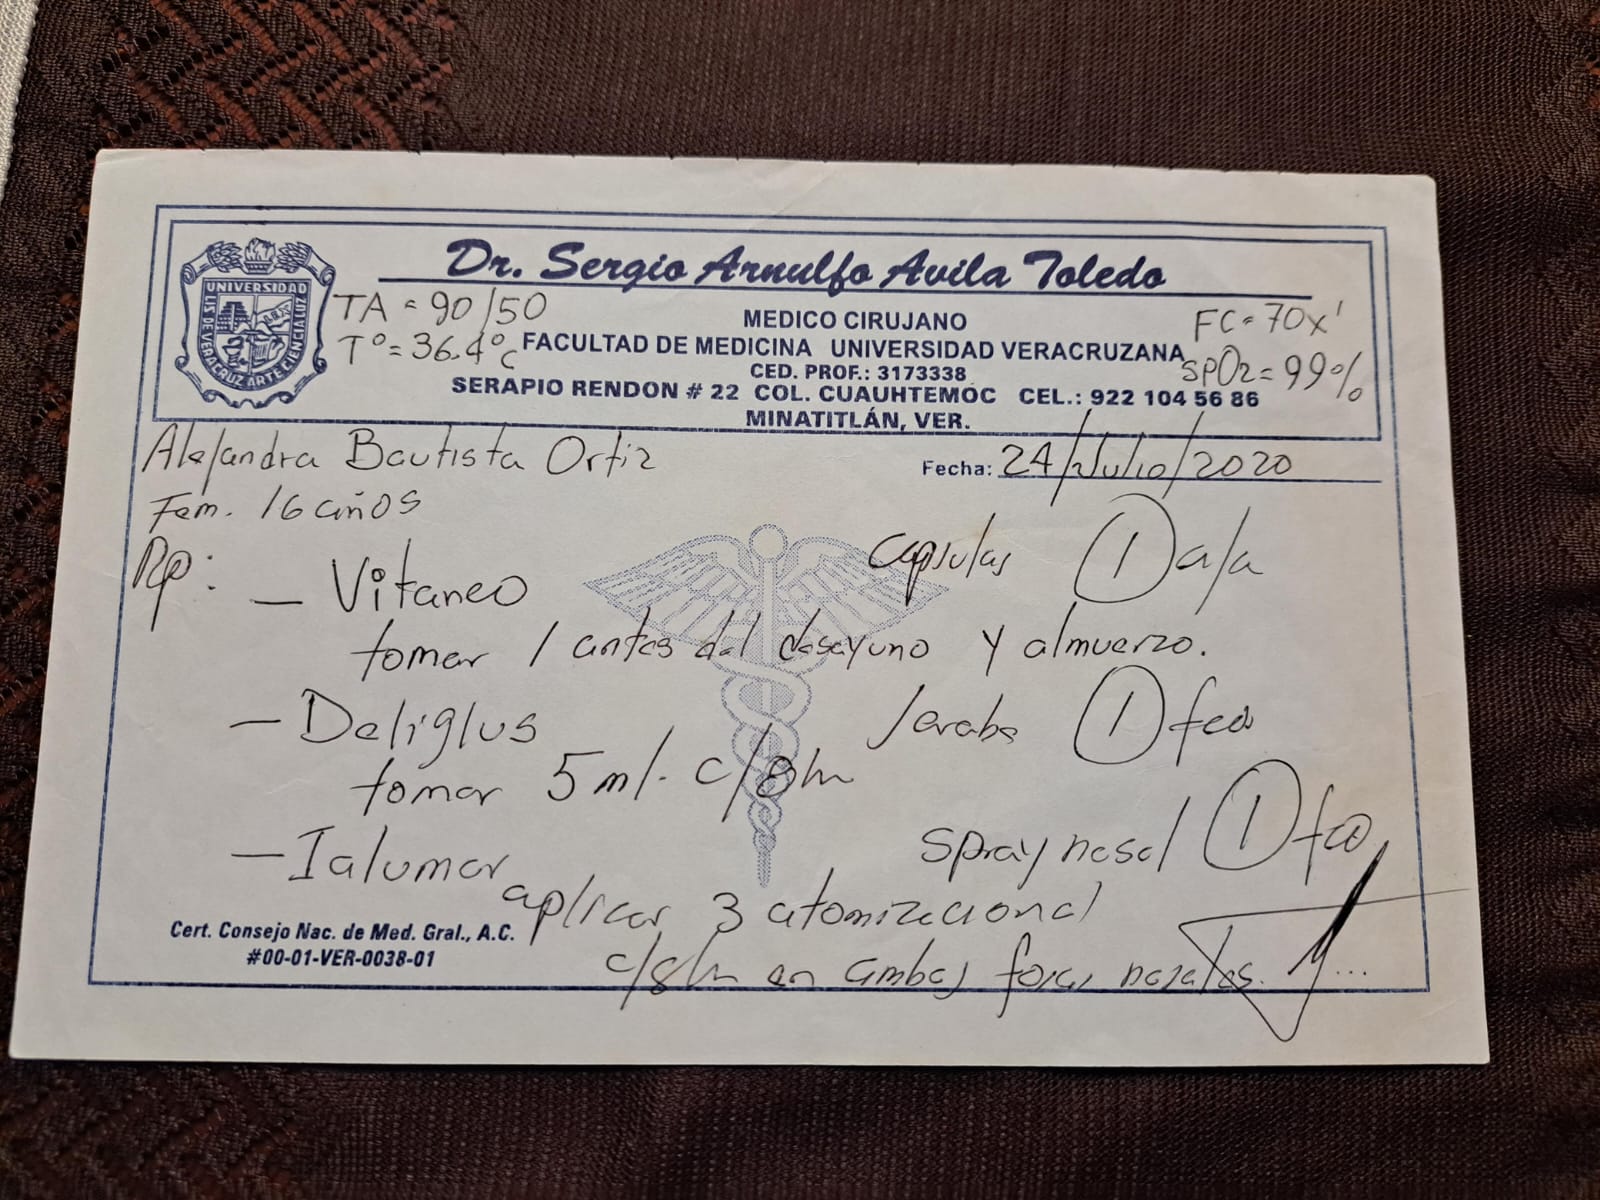 Dr. Sergio Arnulfo Avila Toledo
UNIVERSIDAD
LIS DE VERACRUZ ARTE CIENCIA LUZ
TA = 90/50
T° = 36.4°C
MEDICO CIRUJANO
FACULTAD DE MEDICINA UNIVERSIDAD VERACRUZANA
CED. PROF.: 3173338
SERAPIO RENDON # 22 COL. CUAUHTEMOC CEL.: 922 104 56 86
MINATITLÁN, VER.
FC = 70x'
SpO2 = 99%
Alejandra Bautista Ortiz
Fecha: 24/Julio/2020
Fem. 16 años
Rp:
- Vitaneo capsulas 1 a/a
tomar 1 antes del desayuno y almuerzo.
- Deliglus Jarabe 1 fco
tomar 5 ml. c/8h
- Ialumar spray nasal 1 fco
aplicar 3 atomizacional
c/8h en ambas fosas nasales.
Cert. Consejo Nac. de Med. Gral., A.C.
#00-01-VER-0038-01